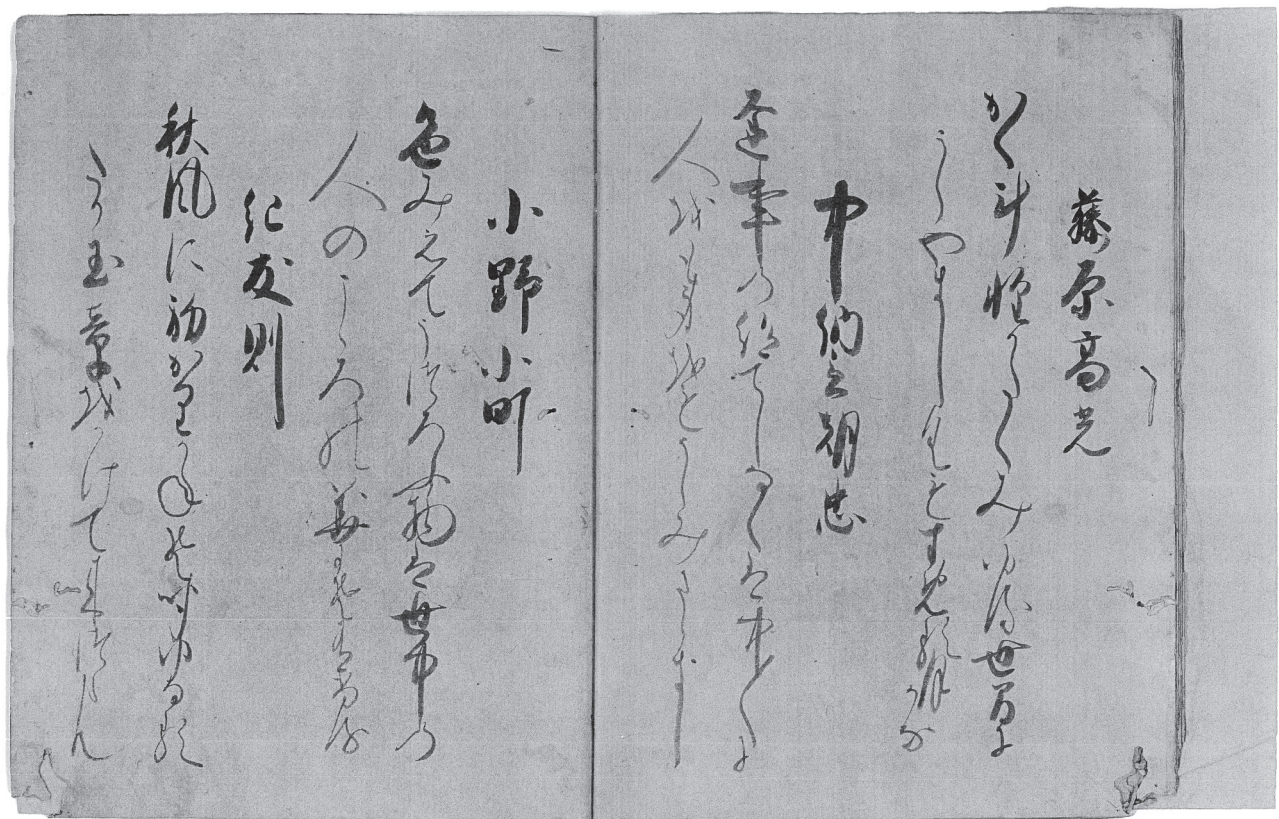 藤原高光
かく斗経かたくみゆる世間に
うらやましくもすめる月かな
中納言朝忠
逢事の絶てしなくは中〳〵に
人をも身をもうらみさらまし
小野小町
色みえてうつろふ物は世中の
人のこゝろの花にそ有ける
紀友則
秋風に初かりかねそ聞ゆなる
たか玉章をかけて来つらん